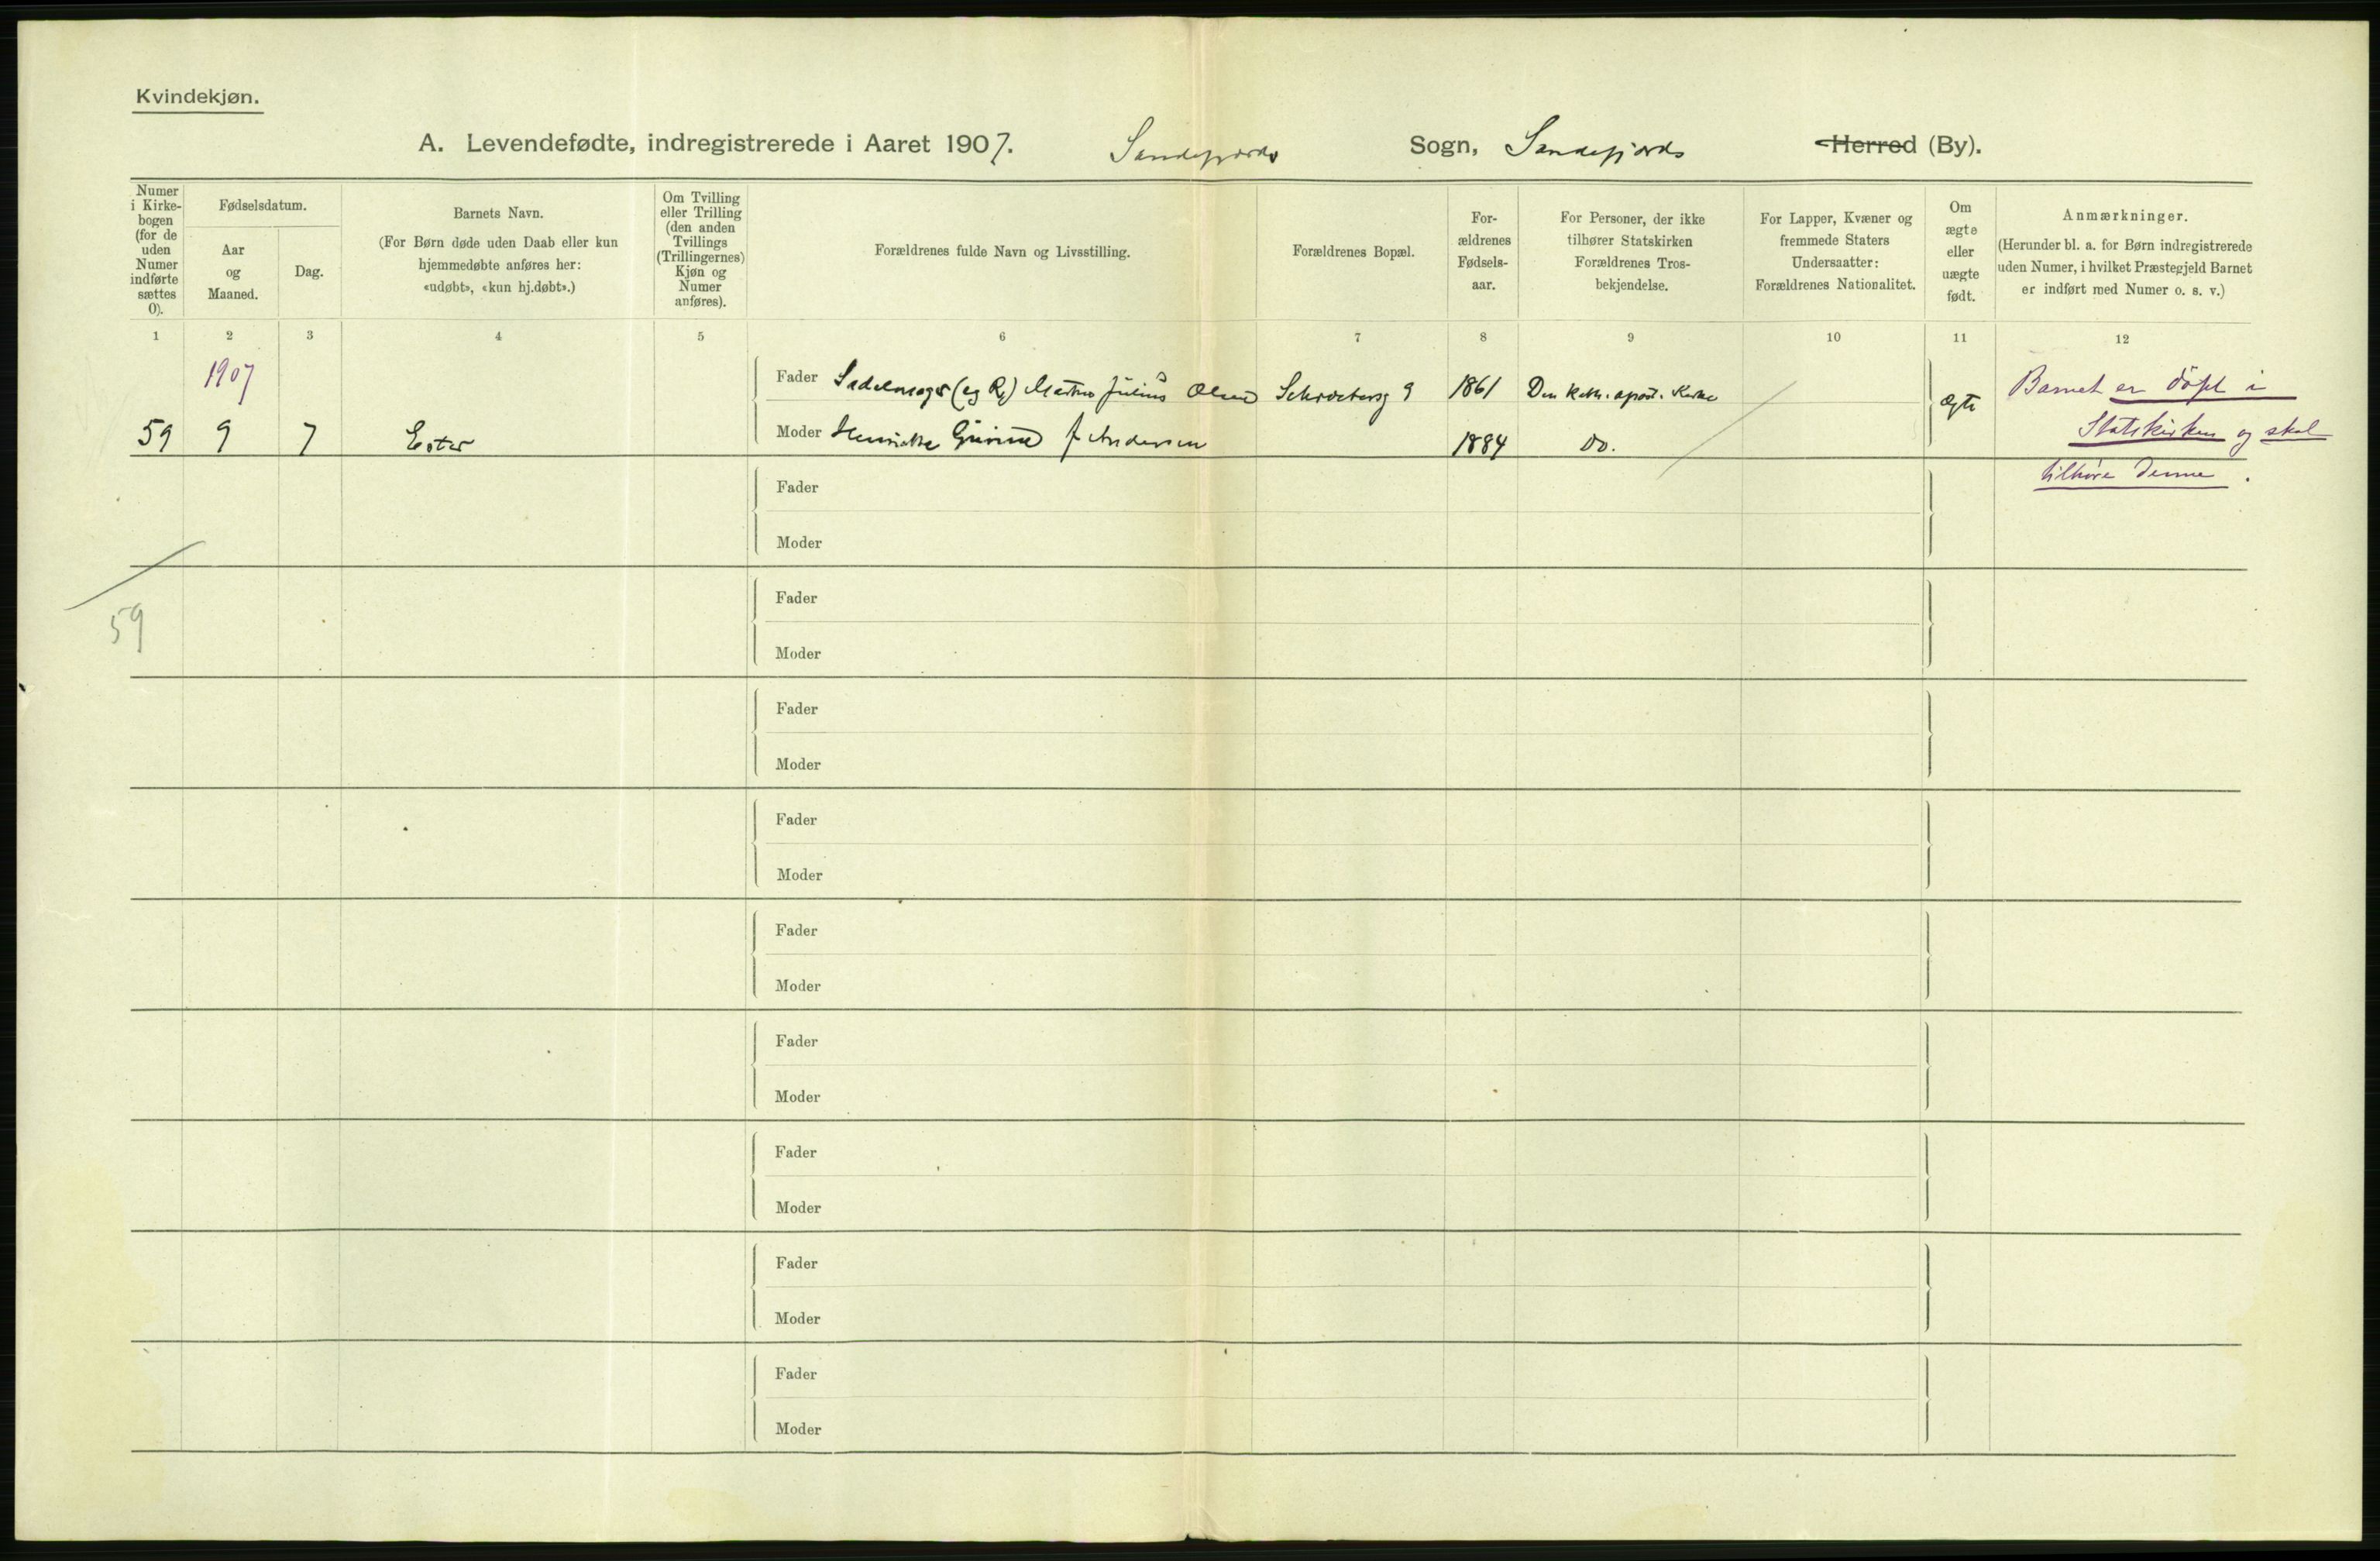 Kvindekjøn.
A. Levendefødte, indregistrerede i Aaret 1907. Sandefjords Sogn, Sandefjords Herred (By).
Numer i Kirke- bogen (for de uden Numer indførte sættes 0).
Fødselsdatum.
Aar og Maaned.
Dag.
Barnets Navn.
(For Børn døde uden Daab eller kun
hjemmedøbte anføres her:
«udøbt», «kun hj.døbt».)
Om Tvilling
eller Trilling
(den anden
Tvillings
(Trillingernes)
Kjøn og
Numer
anføres).
Forældrenes fulde Navn og Livsstilling.
Forældrenes Bopæl.
For-
ældrenes
Fødsels-
aar.
For Personer, der ikke
tilhører Statskirken
Forældrenes Tros-
bekjendelse.
For Lapper, Kvæner og
fremmede Staters
Undersaatter:
Forældrenes Nationalitet.
Om
ægte
eller
uægte
født.
Anmærkninger.
(Herunder bl. a. for Børn indregistrerede
uden Numer, i hvilket Præstegjeld Barnet
er indført med Numer o. s. v.)
1 2 3 4 5 6 7 8 9 10 11 12
1907 Fader Sadelmager (eg R) Julius Olsen 9 1861 Den kath. apost. Kirke ægte Barnet er döpt i
59 9 7 Ester Moder J Andersen 1884 Do. Statskirken og skal
tilhöre denne.
Fader
Moder
59
Fader
Moder
Fader
Moder
Fader
Moder
Fader
Moder
Fader
Moder
Fader
Moder
Fader
Moder
Fader
Moder